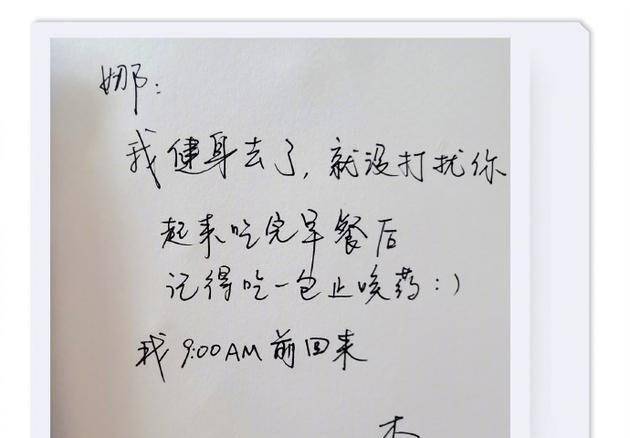 娜:
我健身去了,就没打扰你
起来吃完早餐后
记得吃一包止咳药:)
我9:00AM前回来